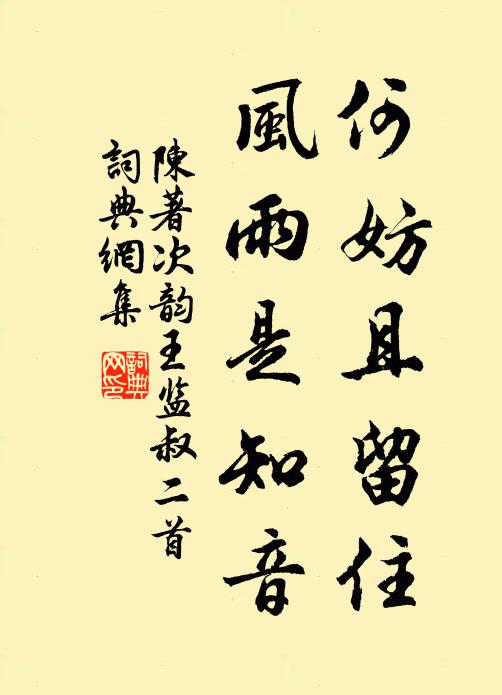 何妨且留住
風雨是知音
陳著次韵王监叔二首
詞典網集
詞典
网印